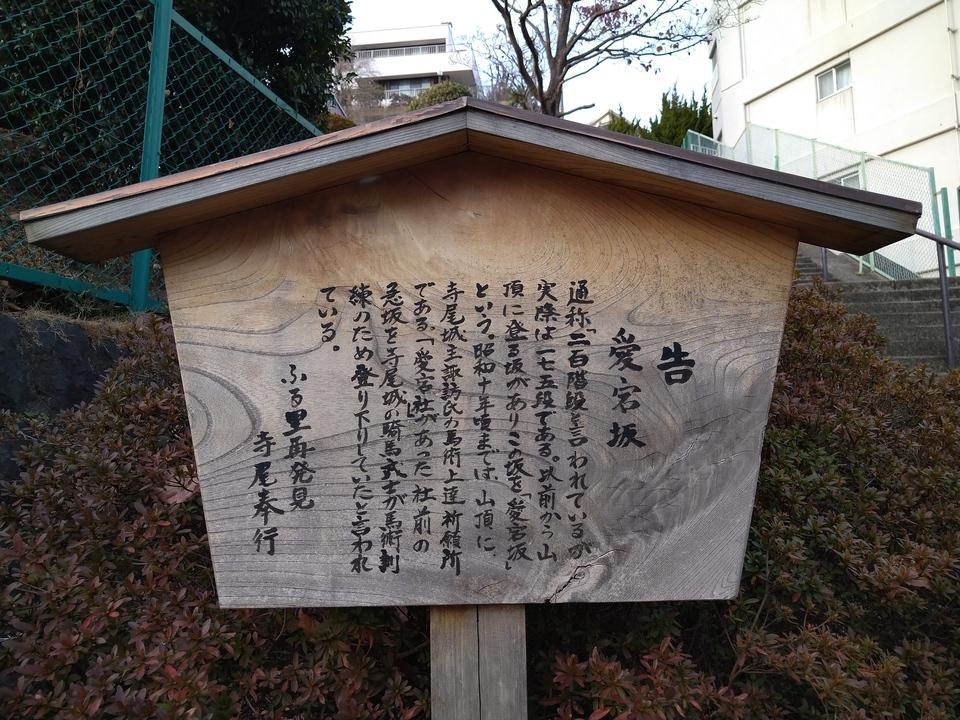 告
愛宕坂
通称「二百階段と言われているが
実際は一七五段である。以前から山
頂に登る坂がありこの坂を「愛宕坂」
という。昭和十年頃までは、山頂に、
寺尾城主諏訪氏の馬術上達祈願所
である「愛宕社」があった 社前の
急坂を寺尾城の騎馬武士が馬術訓
練のため登り下りしていたと言われ
ている。
ふる里再発見
寺尾奉行